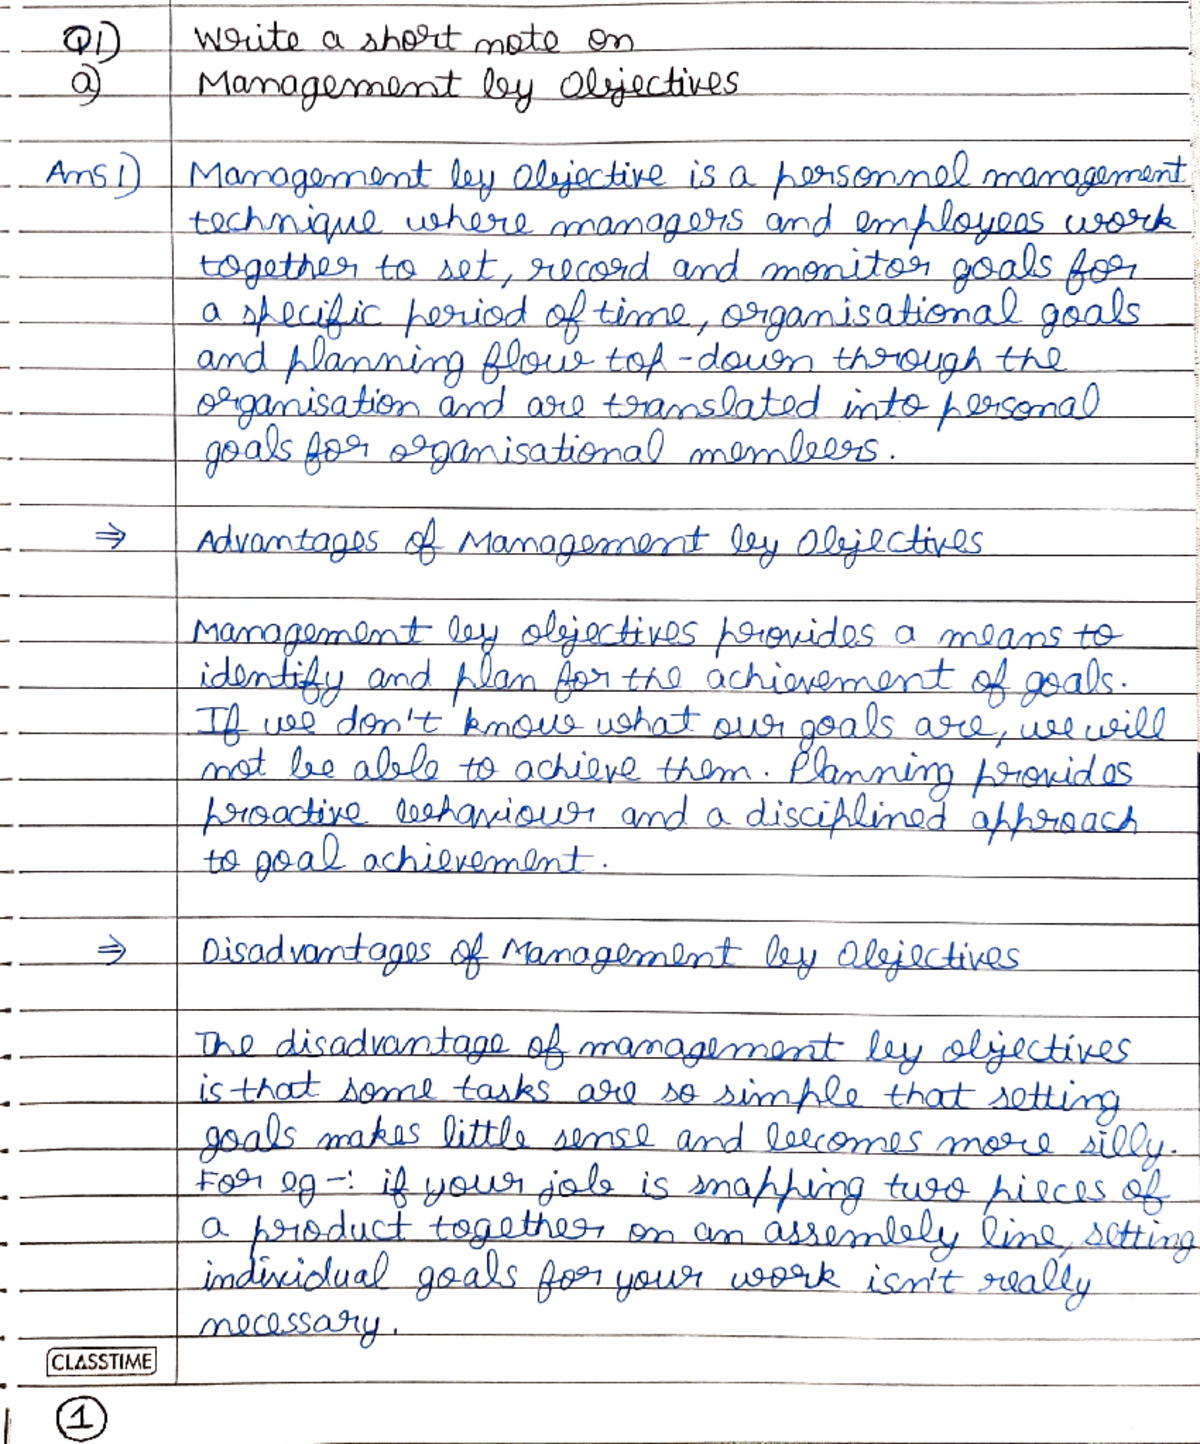 Q1) Write a short note on
a) Management by Objectives
Ans1) Management by objective is a personnel management
technique where managers and employees work
together to set, record and monitor goals for
a specific period of time, organisational goals
and planning flow top-down through the
organisation and are translated into personal
goals for organisational members.
⇒ Advantages of Management by Objectives
Management by objectives provides a means to
identify and plan for the achievement of goals.
If we don't know what our goals are, we will
not be able to achieve them. Planning provides
proactive behaviour and a disciplined approach
to goal achievement.
⇒ Disadvantages of Management by Objectives
The disadvantage of management by objectives
is that some tasks are so simple that setting
goals makes little sense and becomes more silly.
For eg -: if your job is snapping two pieces of
a product together on an assembly line, setting
individual goals for your work isn't really
necessary.
CLASSTIME
1